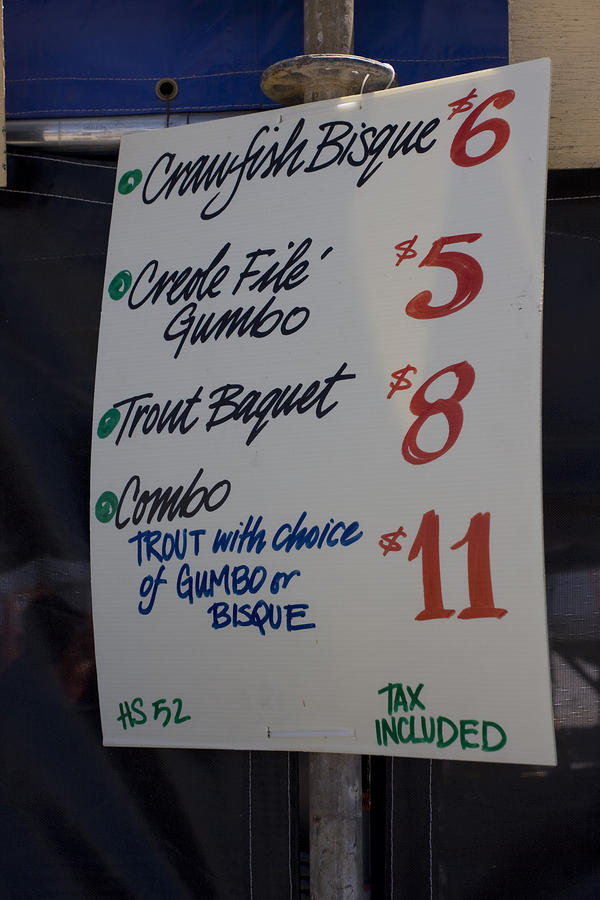 Crawfish Bisque $6
Creole Filé $5
Gumbo
Trout Baquet $8
Combo
TROUT with choice $11
of GUMBO or
BISQUE
HS 52
TAX
INCLUDED